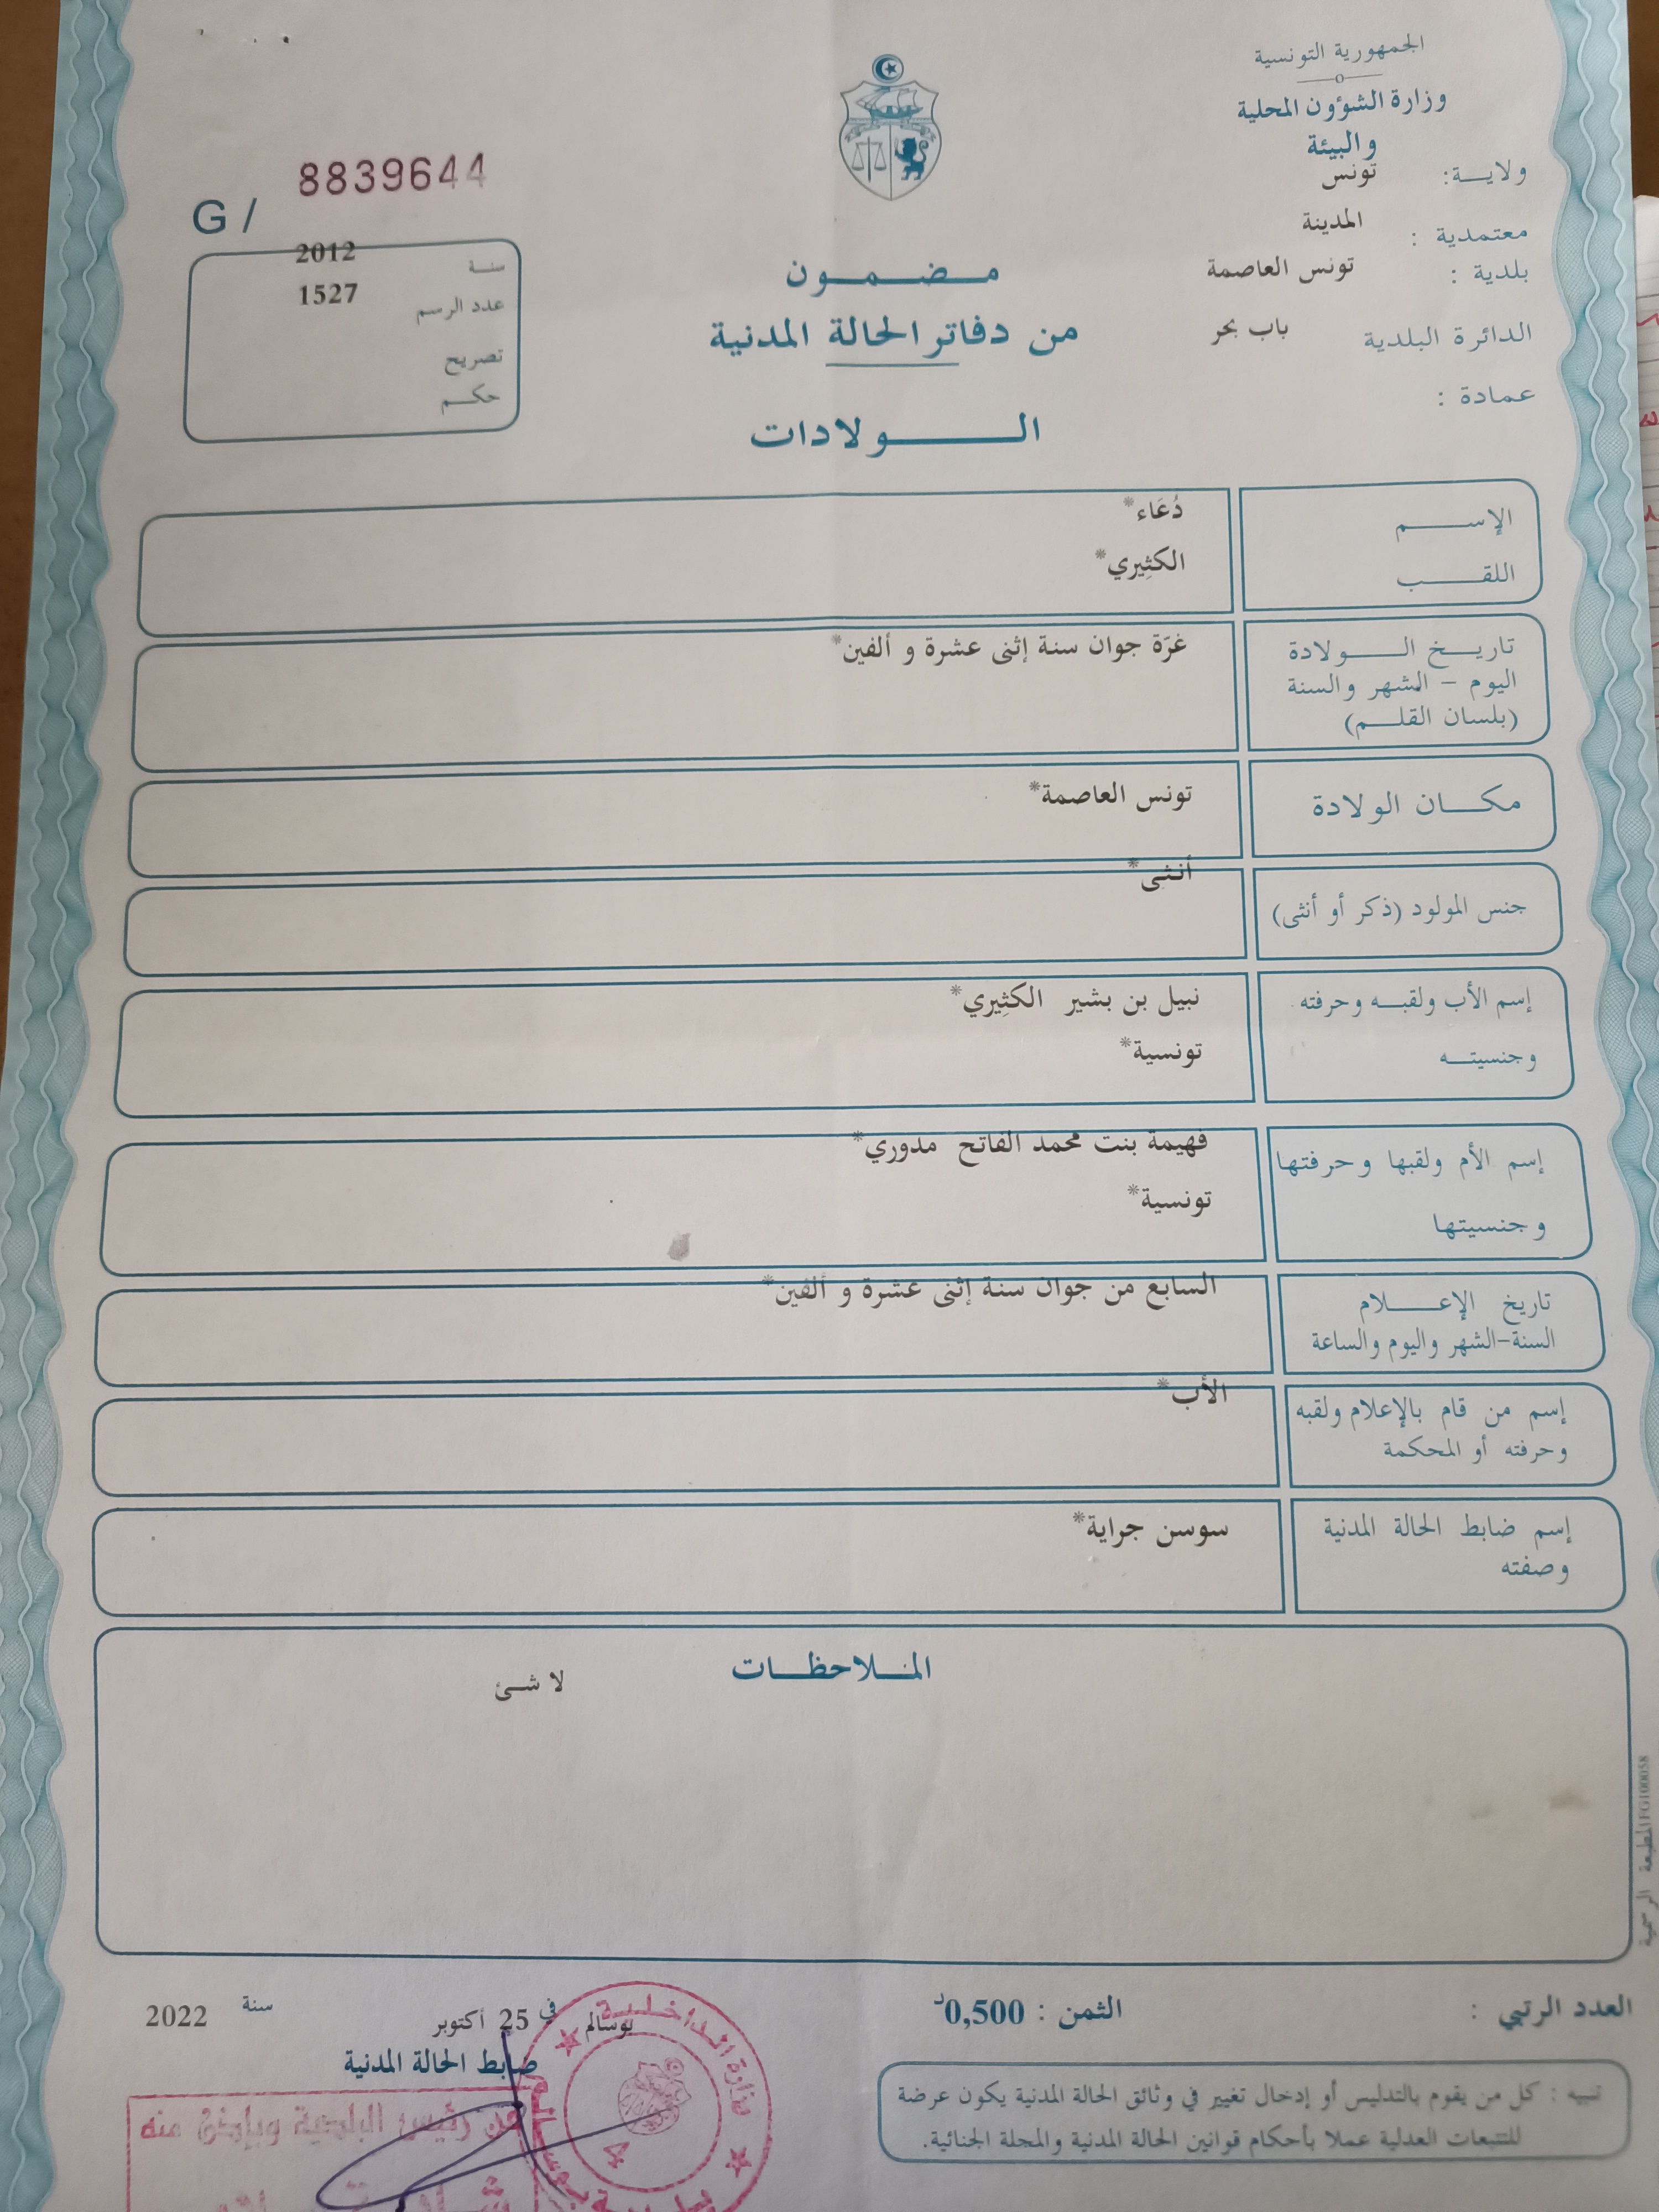 الجمهورية التونسية
وزارة الشؤون المحلية
والبيئة
ولاية: تونس
معتمدية : المدينة
بلدية : تونس العاصمة
الدائرة البلدية باب بحر
عمادة :
8839644
G /
سنة 2012
عدد الرسم 1527
تصريح
حكم
مضمون
من دفاتر الحالة المدنية
الولادات
الإسم دُعَاء*
اللقب الكثِيري*
تاريخ الولادة غرَة جوان سنة إثنى عشرة و ألفين*
اليوم - الشهر والسنة
(بلسان القلم)
مكان الولادة تونس العاصمة*
جنس المولود (ذكر أو أنثى) أنثى*
إسم الأب ولقبه وحرفته نبيل بن بشير الكثِيري*
وجنسيته تونسية*
إسم الأم ولقبها وحرفتها فهيمة بنت محمد الفاتح مدوري*
وجنسيتها تونسية*
تاريخ الإعلام السابع من جوان سنة إثنى عشرة و ألفين*
السنة-الشهر واليوم والساعة
إسم من قام بالإعلام ولقبه الأب*
وحرفته أو المحكمة
إسم ضابط الحالة المدنية سوسن جراية*
وصفته
الملاحظات
لا شئ
العدد الرتبي :
الثمن : 0,500د
بوسالم في 25 أكتوبر سنة 2022
ضابط الحالة المدنية
تنبيه : كل من يقوم بالتدليس أو إدخال تغيير في وثائق الحالة المدنية يكون عرضة
للتتبعات العدلية عملا بأحكام قوانين الحالة المدنية والمجلة الجنائية.
وزارة الداخلية
4
عن رئيس البلدية وبإذن منه
المطبعة الرسمية FG100058